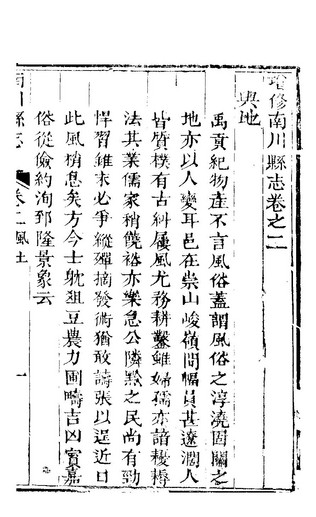 增修南川縣志卷之二
輿地
禹貢紀物產不言風俗蓋謂風俗之淳澆固關之
地亦以人變耳邑在崇山峻嶺間幅員甚遼濶人
皆質樸有古糾屨風尤務耕鑿雖婦孺亦諳耰耨
法其業儒家稍饒裕亦樂急公隣黔之民尚有勁
悍習錐末必爭縱殫摘發術猶敢譸張以逞近日
此風稍息矣方今士耽俎豆農力圃疇吉凶賓嘉
俗從儉約洵郅隆景象云
南川縣志
卷二風土
一